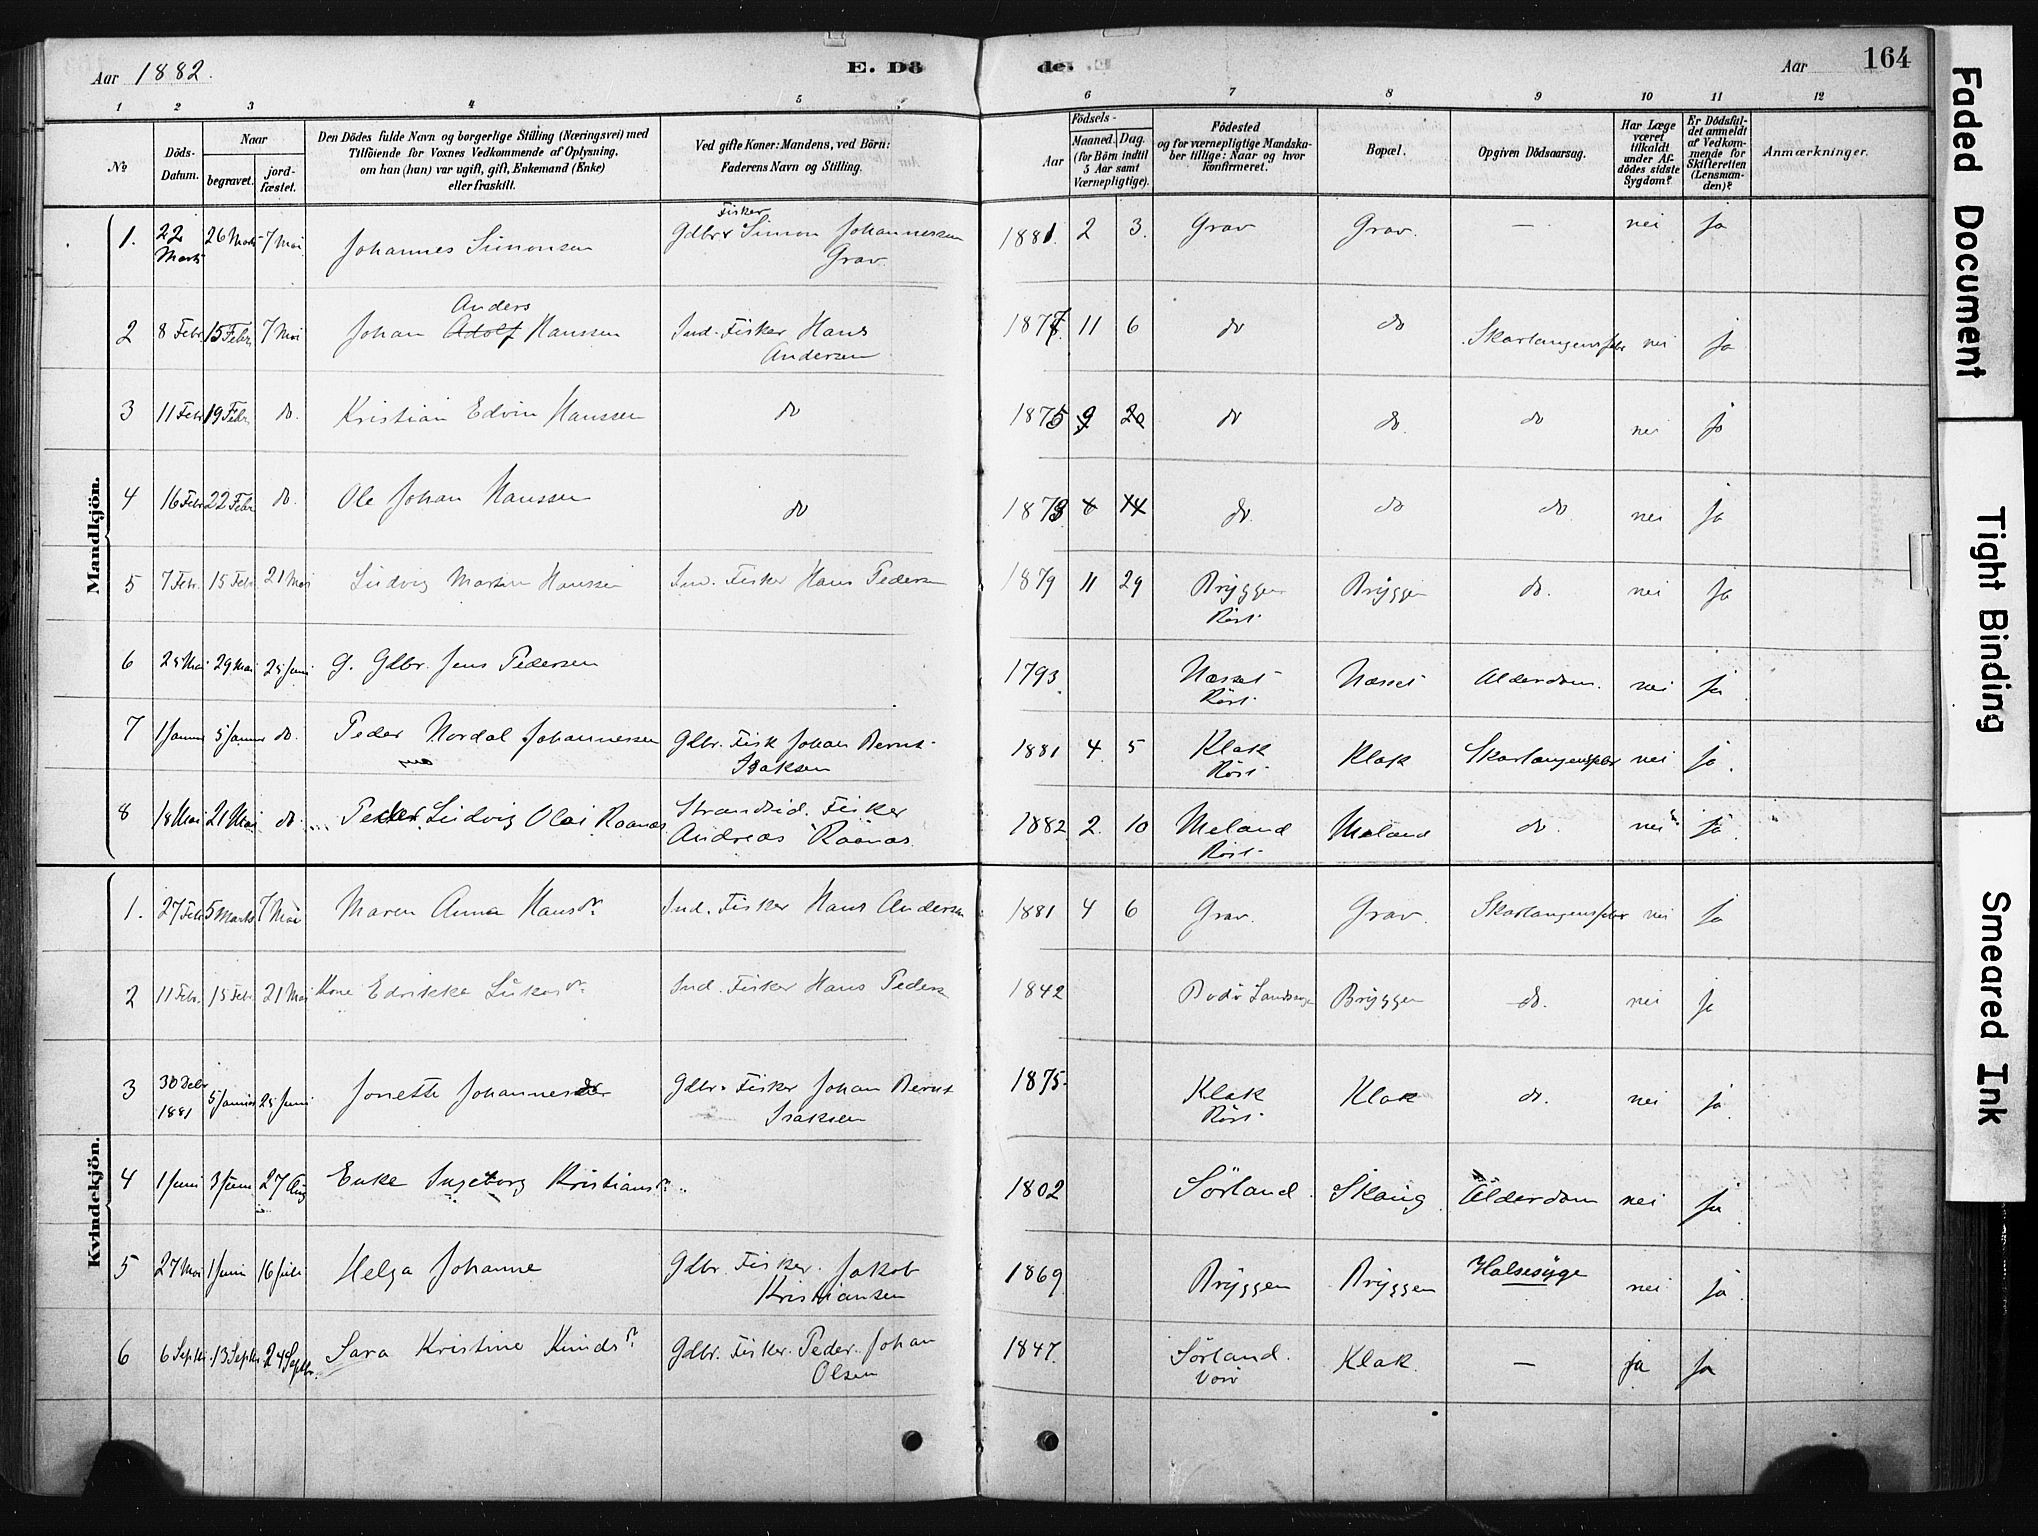 Aar 1882.
E. Dö
de.
Aar
164
1 2 3 4 5 6 7 8 9 10 11 12
№
Döds-Datum.
Naar
begravet.
jord-fæstet.
Den Dödes fulde Navn og borgerlige Stilling (Næringsvei) med
Tilföiende for Voxnes Vedkommende af Oplysning,
om han (hun) var ugift, gift, Enkemand (Enke)
eller fraskilt.
Ved gifte Koner: Mandens, ved Börn:
Faderens Navn og Stilling.
Födsels-
Aar
Maaned. Dag.
(for Börn indtil
5 Aar samt
Værnepligtige).
Födested
og for værnepligtige Mandska-
ber tillige: Naar og hvor
konfirmeret.
Bopæl.
Opgiven Dödsaarsag.
Har Læge
været
tilkaldt
under Af-
dödes sidste
Sygdom?
Er Dödsfal-
det anmeldt
af Vedkom-
mende for
Skifteretten
(Lensman-
den)?
Anmærkninger.
Mandkjön.
1. 22 Marts 26 Marts 7 Mai Johannes Simonsen Gdbr Fisker Simon Johannessen Grav 1881. 2 3. Grav Grav. — nei ja
2 8 Febr 15 Febr 7 Mai Johan Adolf Anders Hanssen Ind. Fisker Hans Andersen 1877 11 6 do do Skarlagensfebr nei ja
3 11 Febr 19 Febr do. Kristian Edvin Hanssen do 1875 9 20 do do. do nei ja
4 16 Febr 22 Febr do. Ole Johan Hanssen do 1873 6 14 do. do do. nei ja
5 7 Febr. 15 Febr 21 Mai Ludvig Martin Hanssen Ind. Fisker Hans Pedersen 1879 11 29 Bryggen Röst. Bryggen do. nei ja
6 25 Mai 29 Mai 25 Juni G. Gdbr. Jens Pedersen 1793. Næsset Röst. Næsset Alderdom. nei ja
7 1 Januar 5 Januar do. Peder Nordal Johannessen Gdbr. Fisk Johan Bernt Isaksen 1881 4 5 Klak Röst. Klak Skarlagensfebr nei ja.
8 18 Mai 21 Mai do. Peder Ludvig Olai Raanas Strandsid. Fisker Andreas Raanas. 1882 2. 10 Meland Röst. Meland do. nei ja
Kvindekjön.
1. 27 Feb 5 Marts 7 Mai Maren Anna Hansdr. Ind. Fisker Hans Andersen 1881 4 6 Grav. Grav. Skarlagensfebr nei ja
2 11 Febr. 15 Febr. 21 Mai Kone Edrikke Lukasdr. Ind. Fisker Hans Pedersen 1842 Bodö Landsogn Bryggen do. nei ja
3 30 Debr 1881 5 Januar 25 Juni Jonette Johannesdr Gdbr. Fisker Johan Bernt Isaksen 1875. Klak Röst. Klak do. nei ja.
4 1 Juni 3 Juni 27 Aug Enke Ingeborg Kristiansdr. 1802 Sörland. Skaug. Alderdom nei ja
5 27 Mai 1 Juni 16 Juli Helga Johanne Gdbr. Fisker. Jakob Kristiansen 1869 Bryggen Bryggen Halsesyge nei ja.
6 6 Septbr. 13 Septbr. 24 Septbr. Sara Kristine Knudsdr. Gdbr. Fisker. Peder Johan Olsen 1847. Sörland. Værö Klak. — ja ja
Faded Document
Tight Binding
Smeared Ink